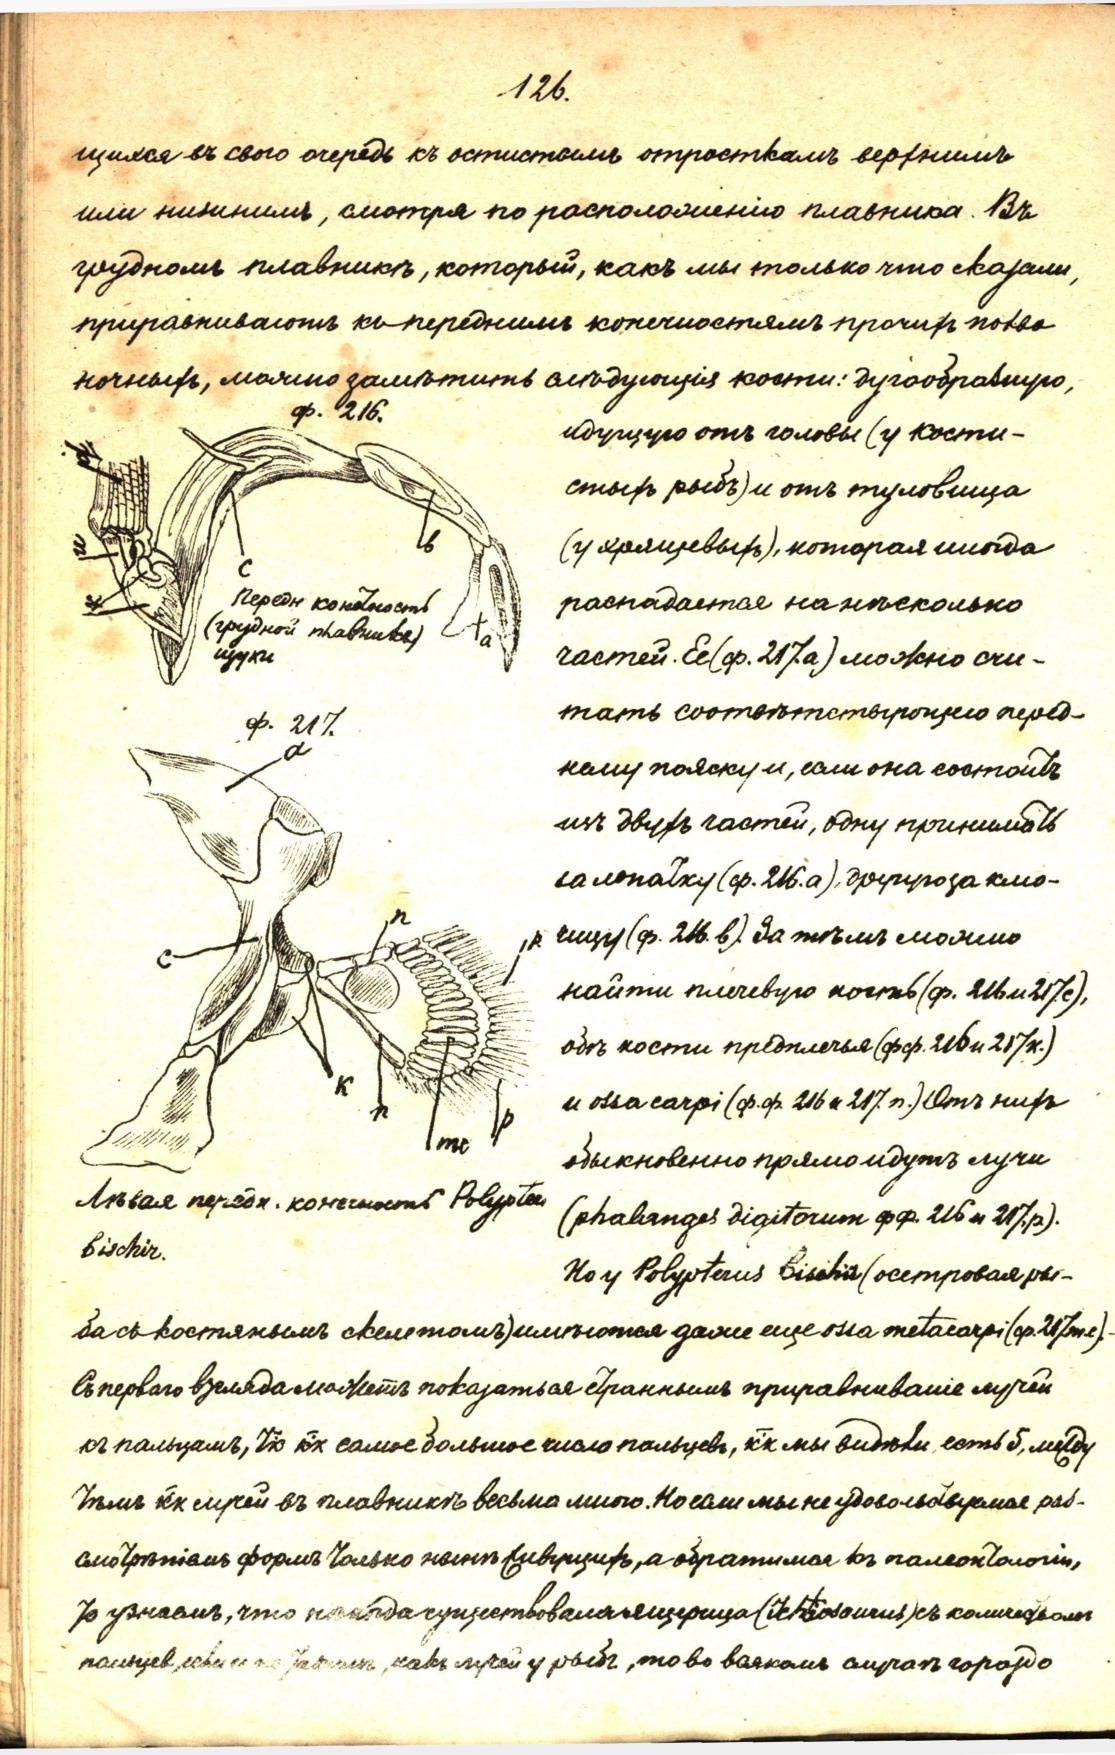 126.
щихся въ свою очередь къ остистымъ отросткамъ верхнимъ
или нижнимъ, смотря по расположенію плавника. Въ
грудномъ плавникѣ, который, какъ мы только что сказали,
приравниваютъ къ переднимъ конечностямъ прочихъ позво
ночныхъ, можно замѣтить слѣдующія кости: дугообразную,
ф. 216.
идущую отъ головы (у кости-
стыхъ рыбъ) и отъ туловища
(у хрящевыхъ), которая иногда
распадается на нѣсколько
частей. Ее (ф. 217.а) можно счи-
тать соотвѣтствующею перед-
нему пояску и, если она состоитъ
изъ двухъ частей, одну принимать
за лопатку (ф. 216.а), другую за клю-
чицу (ф. 216.в). За тѣмъ можно
найти плечевую кость (ф. 216 и 217.с),
обѣ кости предплечья (фф. 216 и 217 к.)
и ossa carpi (ф.ф. 216 и 217. п.) Отъ нихъ
обыкновенно прямо идутъ лучи
(phalanges digitorum фф. 216 и 217.р).
Но у Polypterus bischir (осетровая ры-
с
в
а
Передн конечность
(грудной плавникъ)
щуки
ф. 217.
а
с
п
р
к
п
mc
р
Лѣвая передн. конечность Polypteri
bischir.
ба съ костянымъ скелетомъ) имѣются даже еще ossa metacarpi (ф. 217 m.c).-
Съ перваго взгляда можетъ показаться страннымъ приравниваніе лучей
къ пальцамъ, тк кк самое большое число пальцевъ, кк мы видѣли, есть 5, между
тѣмъ кк лучей въ плавникѣ весьма много. Но если мы не удовольствуемся раз-
смотрѣніемъ формъ только нынѣ живущихъ, а обратимся къ палеонтологіи,
то узнаемъ, что нѣкогда существовала ящерица (Ichtiosaurus) съ количествомъ
пальцев, если и не такимъ, какъ лучей у рыбъ, то во всякомъ случаѣ гораздо